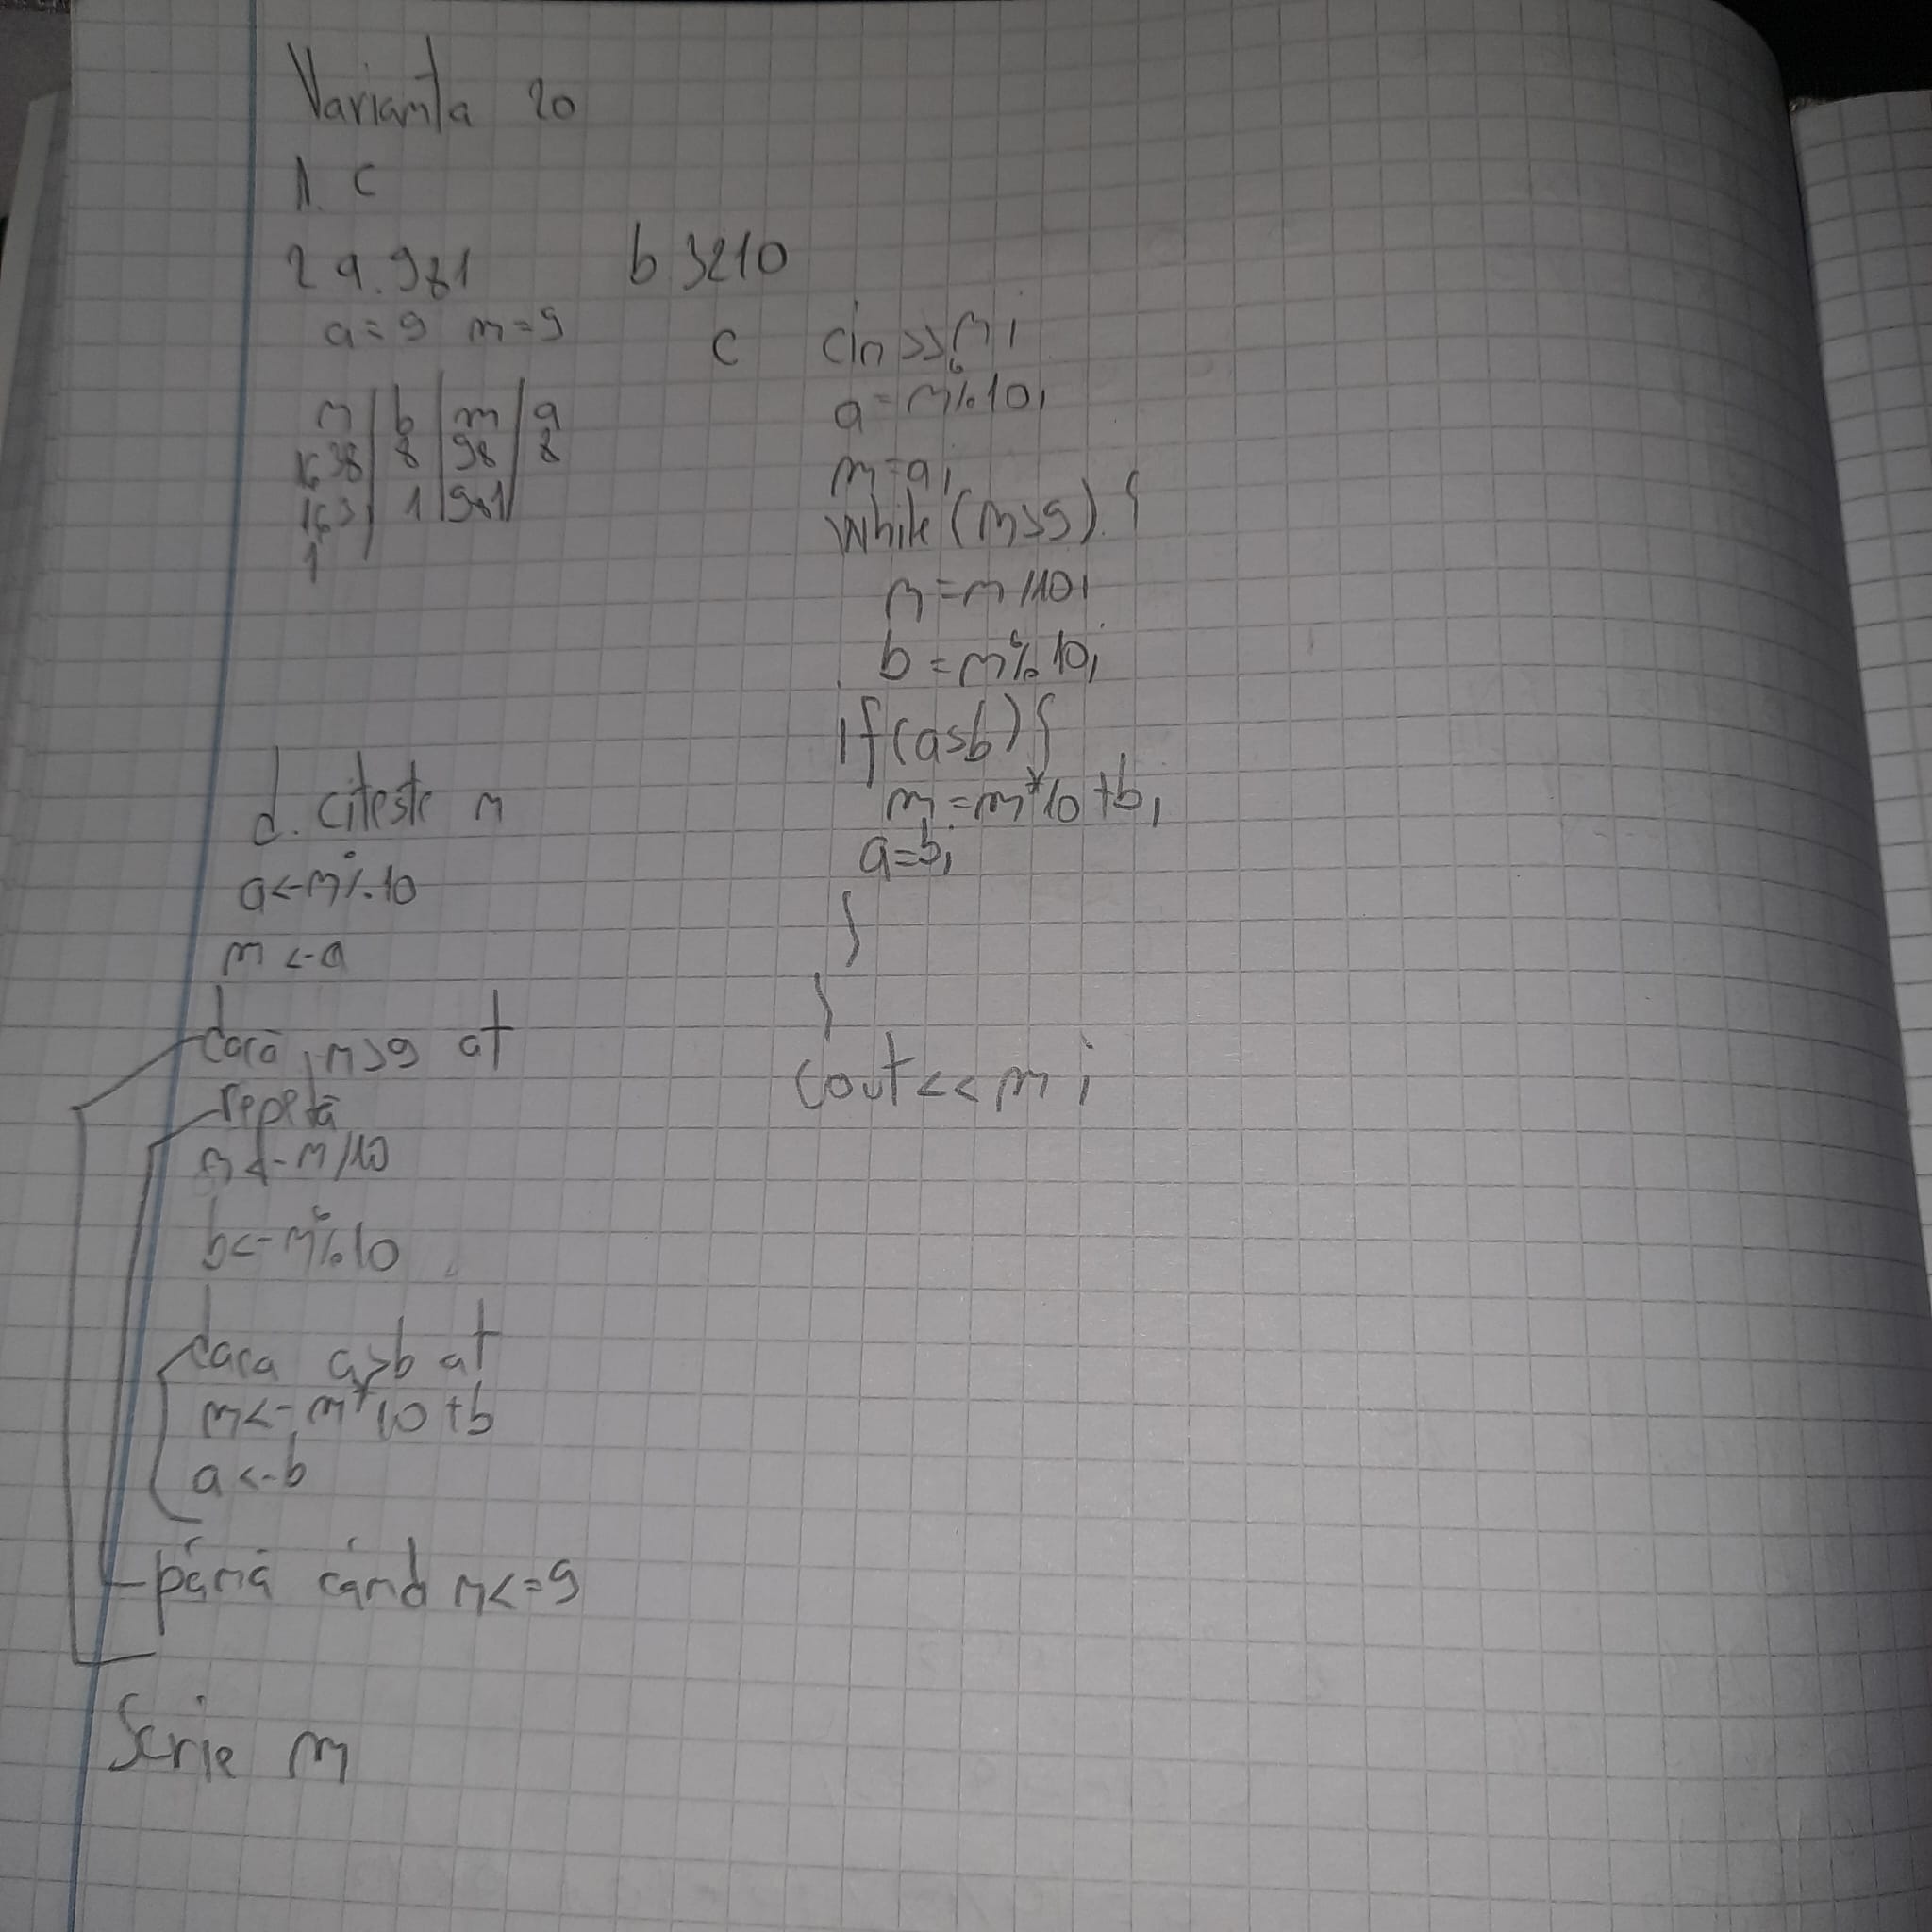 Varianta 20
1. c
2 a. 981
a=9 m=9
n | b | m | a
1638 | 8 | 98 | 8
163 | 1 | 981
1
b 3210
c cin>>n;
a=n%10;
m=a;
while(n>9) {
n=n/10;
b=n%10;
if(a>b){
m=m*10+b;
a=b;
}
}
cout<<m;
d. citeste n
a<-n%10
m<-a
dacă n>9 at
repetă
n<-n/10
b<-n%10
daca a>b at
m<-m*10+b
a<-b
până când n<=9
Scrie m